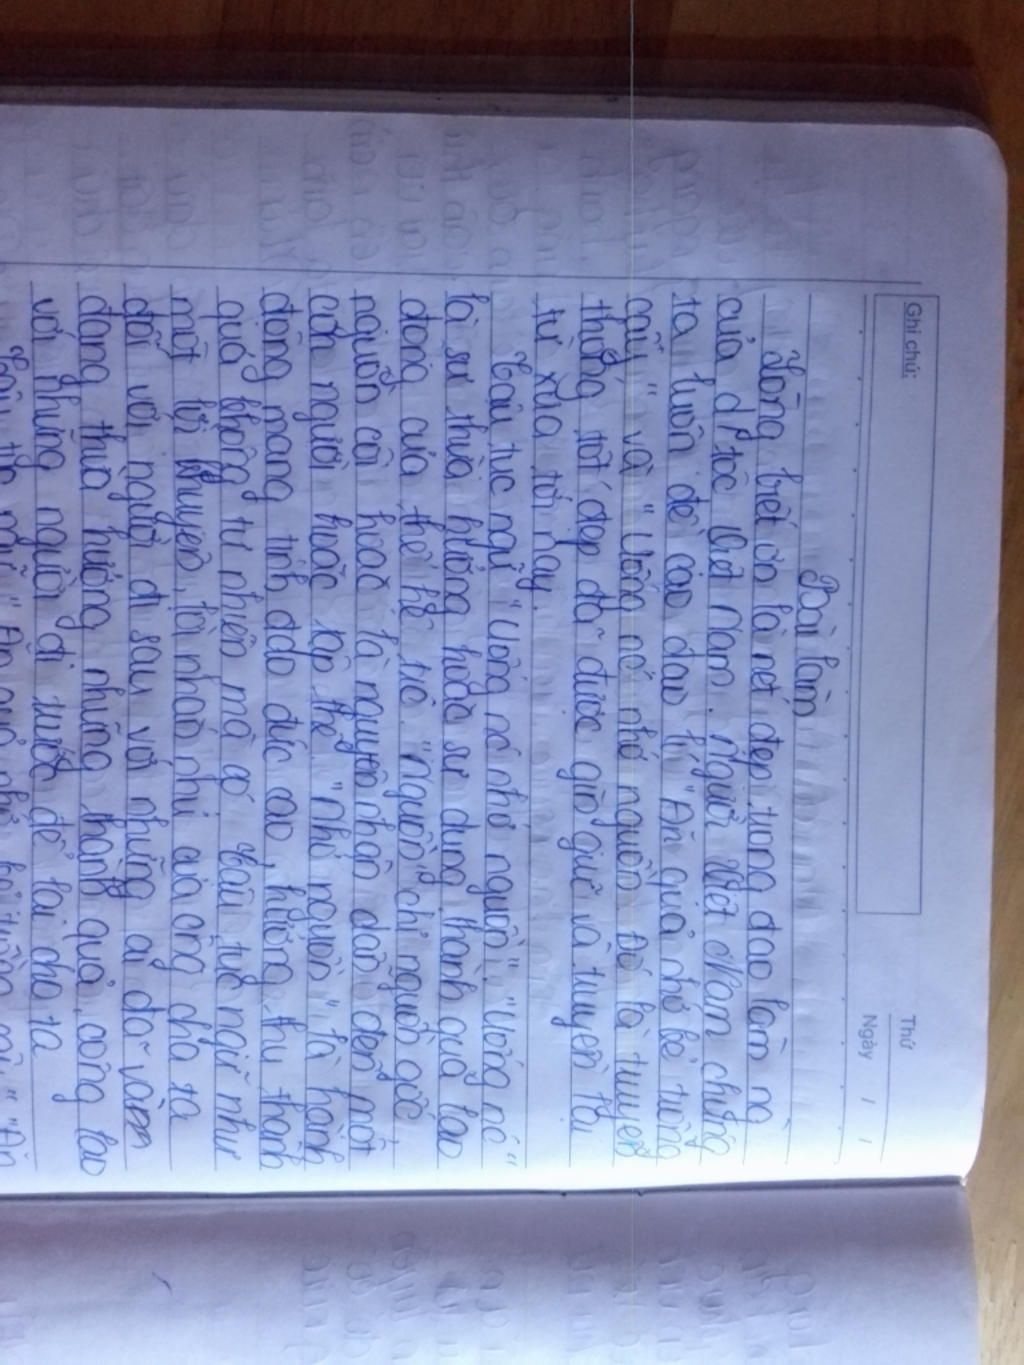 Ghi chú:
Thứ
Ngày / /
Bài làm
Lòng biết ơn là nét đẹp trong đạo làm ng
của d/tộc Việt Nam. Người Việt Nam chúng
ta luôn đề cao đạo lí "Ăn quả nhớ kẻ trồng
cây" và "Uống nớ nhớ nguồn. Đó là truyền
thống tốt đẹp đã được gìn giữ và truyền lại
từ xưa tới nay.
Câu tục ngữ "Uống nớ nhớ nguồn". "Uống nớ"
là sự thừa hưởng hoặc sử dụng thành quả lao
động của thế hệ trc. "Nguồn" chỉ nguồn gốc,
nguồn cội hoặc là nguyên nhân dẫn đến, một
con người hoặc tập thể. "Nhớ nguồn" là hành
động mang tính đạo đức cao, hưởng thụ thành
quả không tự nhiên mà có. Câu tục ngữ như
một lời khuyên, lời nhắc nhở của ông cha ta
đối với người đi sau, với những ai đã và
đang thừa hưởng những thành quả, công lao
với những người đi trước để lại cho ta